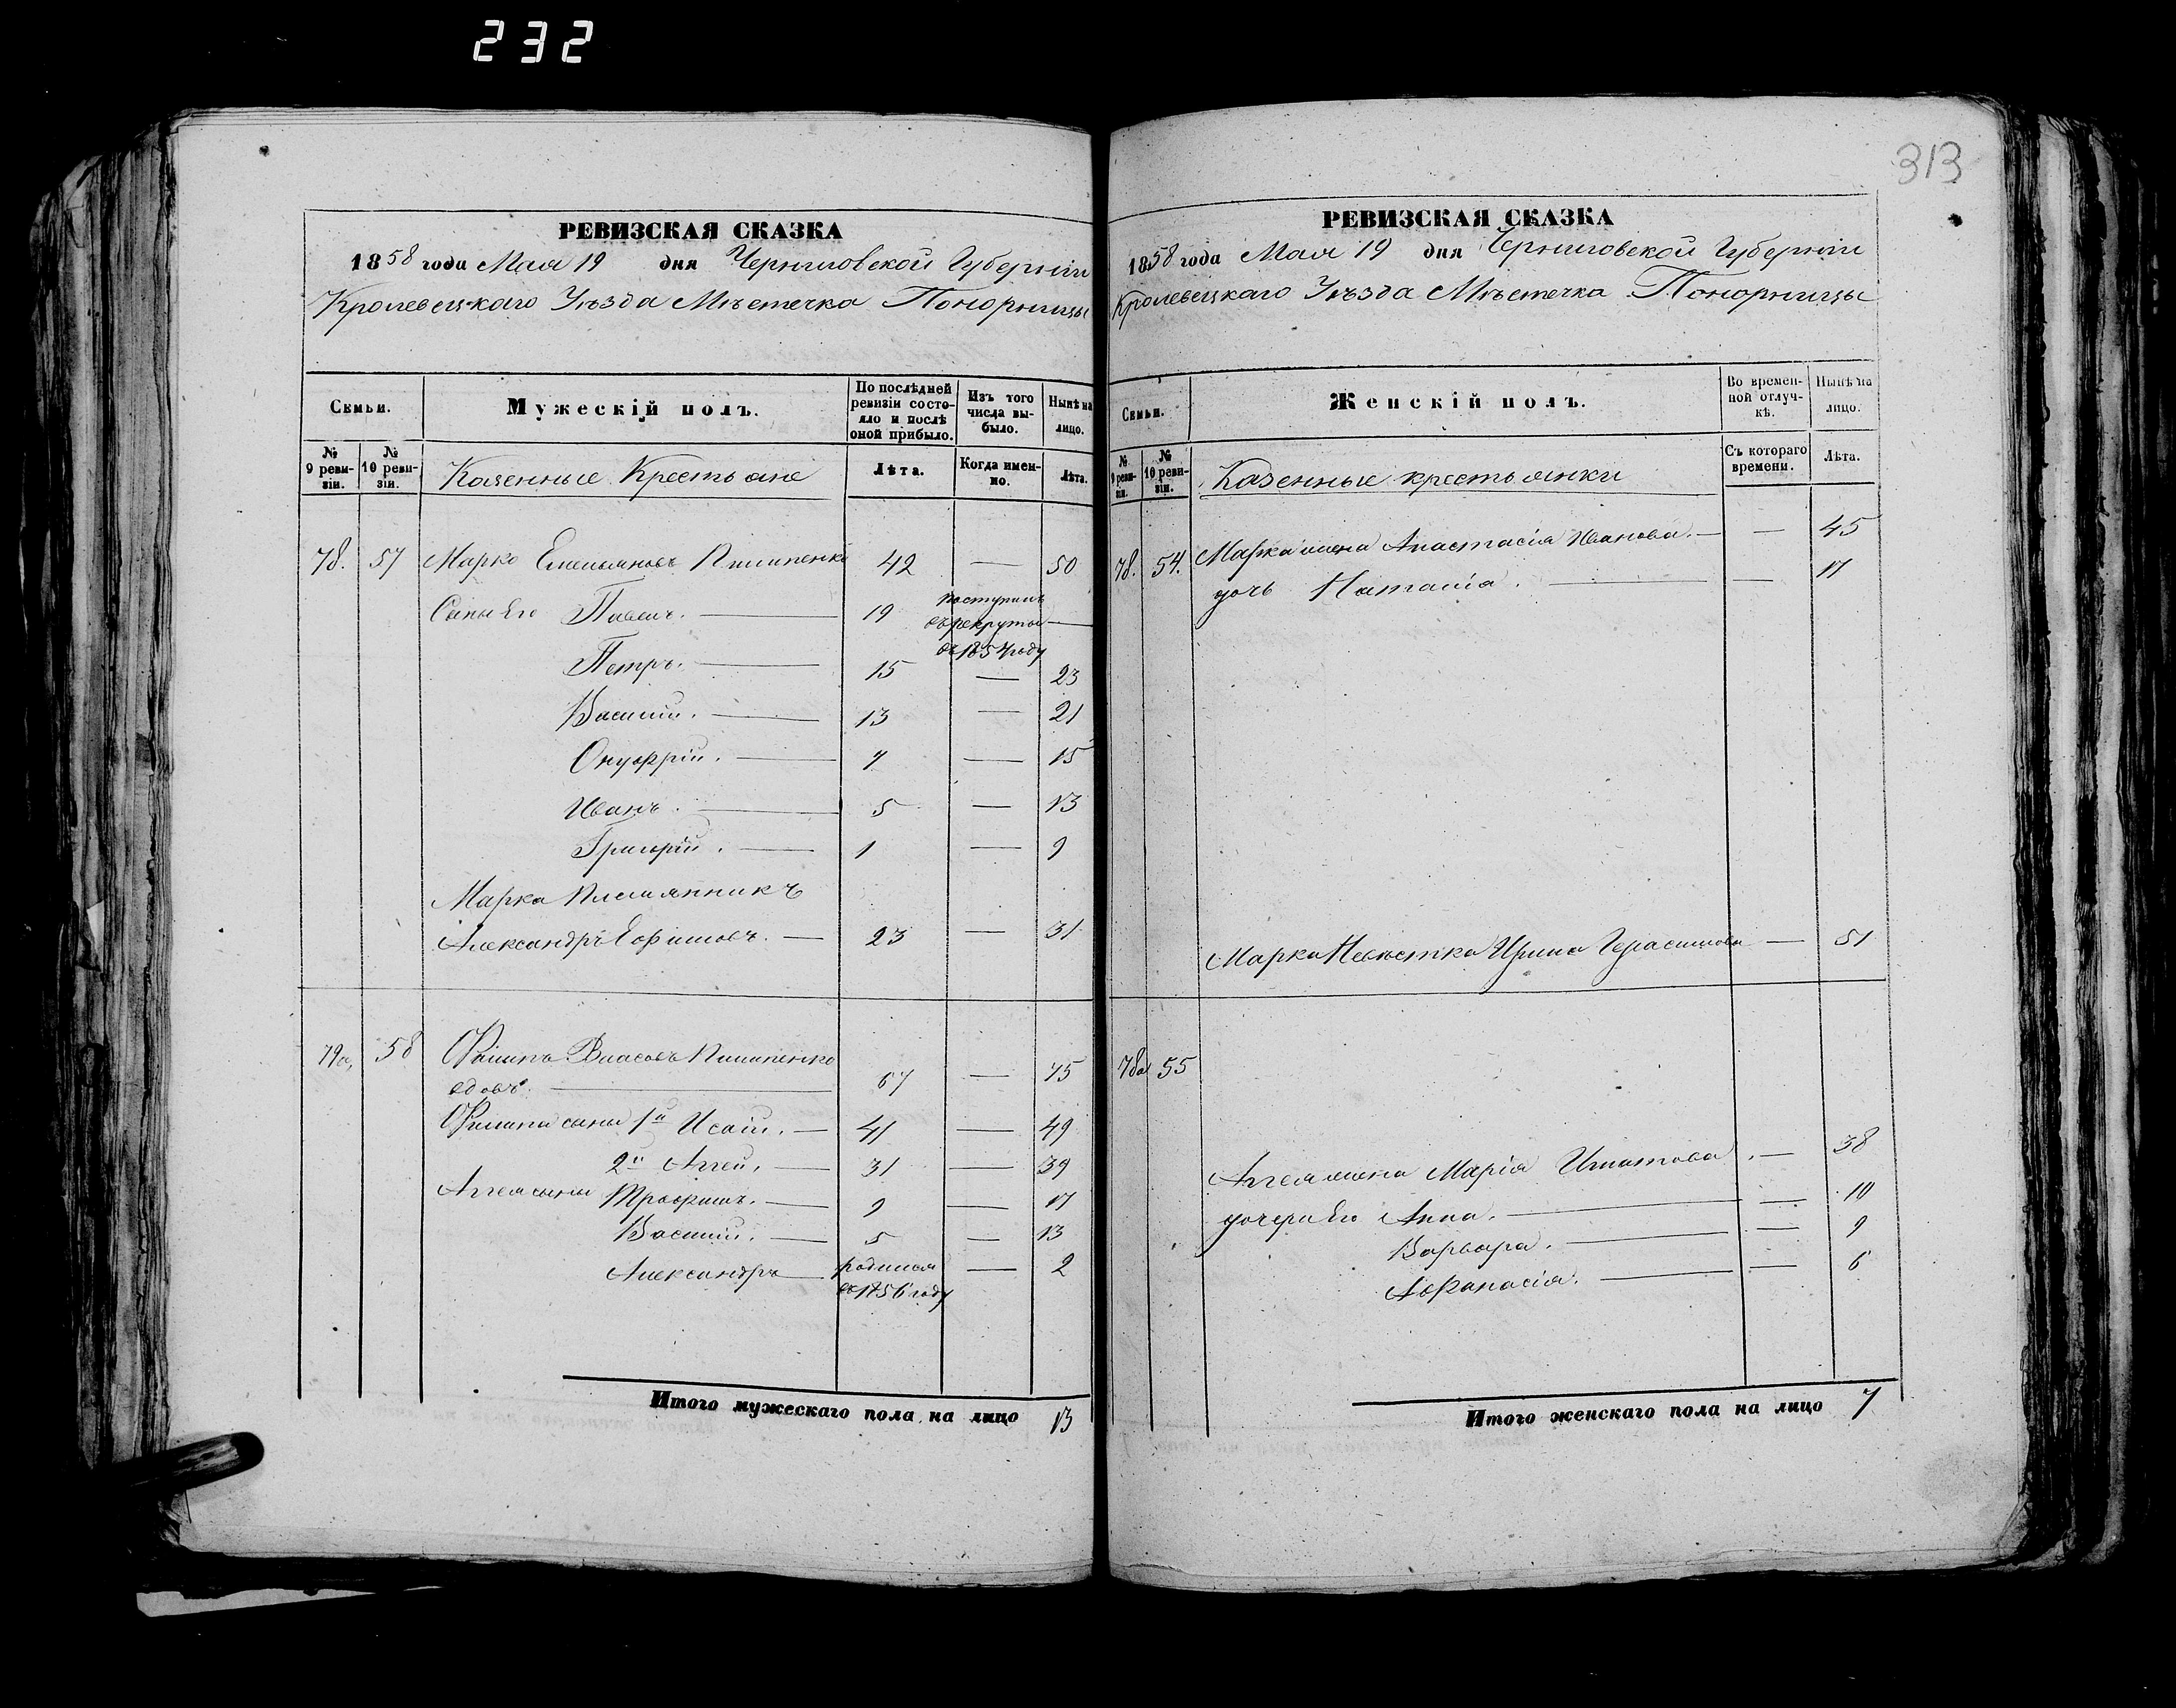 232
313
РЕВИЗСКАЯ СКАЗКА
1858 года Мая 19 дня Черниговской Губерніи
Кролевецкаго Уѣзда Мѣстечка Понорницы
Семьи.
Мужескій полъ.
По послѣдней ревизіи состояло и послѣ оной прибыло.
Изъ того числа выбыло.
Нынѣ на лицо.
№ 9 ревизіи.
№ 10 ревизіи.
Казенные Крестьяне
Лѣта.
Когда именно.
Лѣта.
78. 57 Марко Емельяновъ Пилипенко 42 — 50
Сыны Его Павелъ. — 19 поступилъ въ рекруты въ 1854 году —
Петръ. — 15 — 23
Василій. — 13 — 21
Онуфрій. — 7 — 15
Иванъ. — 5 — 13
Григорій. — 1 — 9
Марка Племянникъ
Александръ Ефимовъ. — 23 — 31
79а, 58 Филипъ Власовъ Пилипенко
вдовъ. — 67 — 75
Филипа сыны 1й Исаій. — 41 — 49
2й Аггей. — 31 — 39
Аггея сыны Трофимъ. — 9 — 17
Василій. — 5 — 13
Александръ — родился въ 1856 году — 2
Итого мужескаго пола на лицо 13
РЕВИЗСКАЯ СКАЗКА
1858 года Мая 19 дня Черниговской Губерніи
Кролевецкаго Уѣзда Мѣстечка Понорницы
Семьи.
Женскій полъ.
Во временной отлучкѣ.
Нынѣ на лицо.
№ 9 ревизіи.
№ 10 ревизіи.
Казенные крестьянки
Съ котораго времени.
Лѣта.
78. 54. Марка жена Анастасія Иванова. — — 45
дочь Наталія. — — 17
Марка Невѣстка Ирина Герасимова — 51
78а 55
Аггея жена Марія Игнатова. — 38
дочери Его Анна. — — 10
Варвара. — — 9
Афанасія. — — 6
Итого женскаго пола на лицо 7